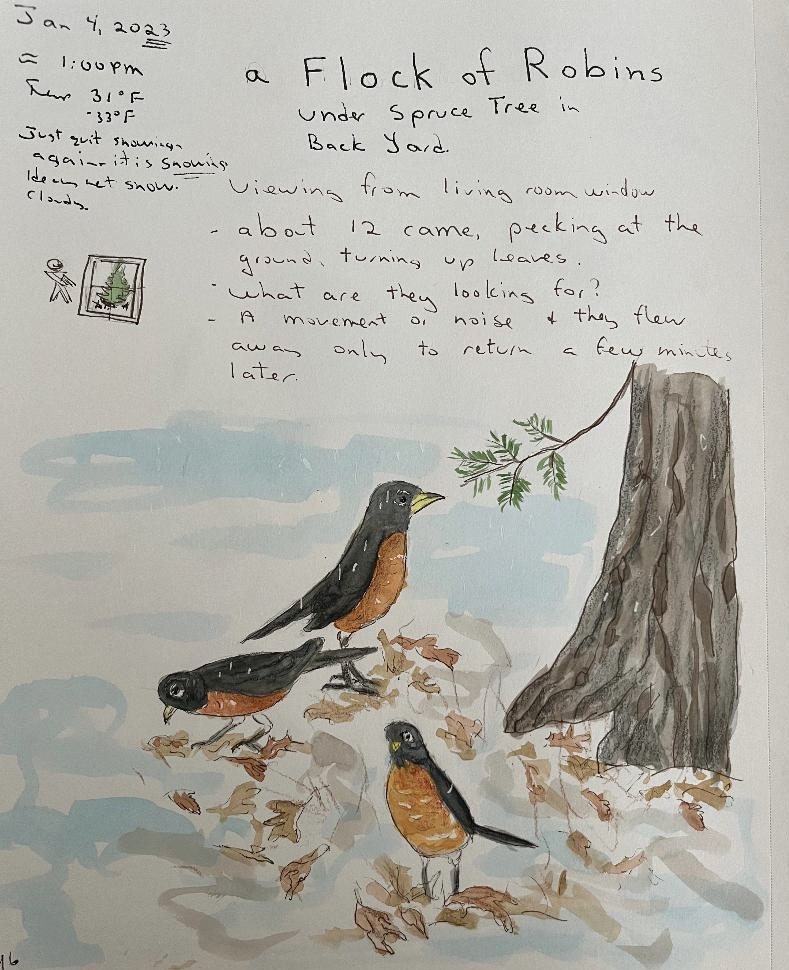 Jan 4, 2023
≈ 1:00pm
Temp 31°F
-33°F
Just quit snowing
again it is snowing
wet snow.
Cloudy.
a Flock of Robins
under Spruce Tree in
Back Yard.
Viewing from living room window
- about 12 came, pecking at the
ground, turning up leaves.
- What are they looking for?
- A movement or noise & they flew
away only to return a few minutes
later.